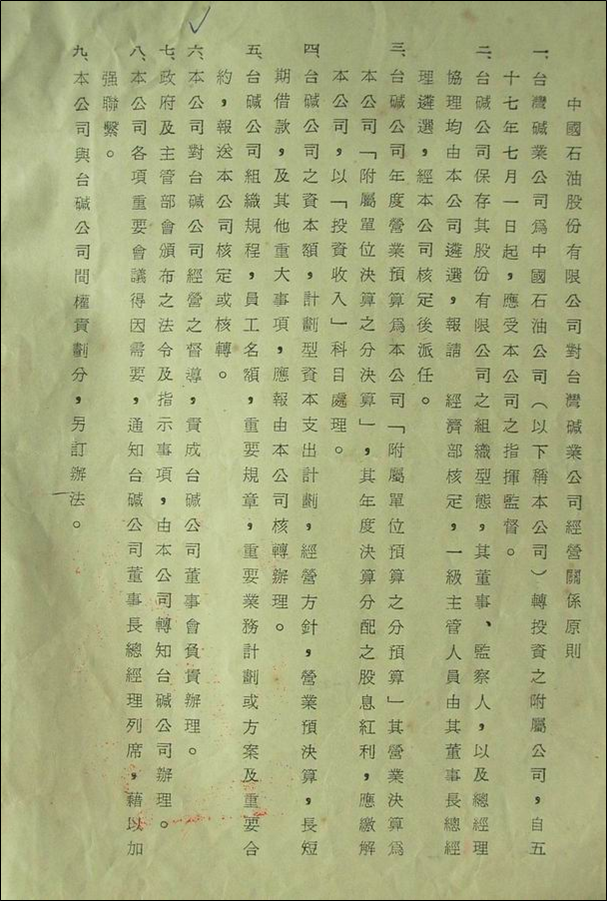 中國石油股份有限公司對台灣碱業公司經營關係原則
一、台灣碱業公司為中國石油公司（以下稱本公司）轉投資之附屬公司，自五
十七年七月一日起，應受本公司之指揮監督。
二、台碱公司保存其股份有限公司之組織型態，其董事、監察人，以及總經理
協理均由本公司遴選，報請　經濟部核定，一級主管人員由其董事長總經
理遴選，經本公司核定後派任。
三、台碱公司年度營業預算為本公司「附屬單位預算之分預算」其營業決算為
本公司「附屬單位決算之分決算」，其年度決算分配之股息紅利，應繳解
本公司，以「投資收入」科目處理。
四、台碱公司之資本額，計劃型資本支出計劃，經營方針，營業預決算，長短
期借款，及其他重大事項，應報由本公司核轉辦理。
五、台碱公司組織規程，員工名額，重要規章，重要業務計劃或方案及重要合
約，報送本公司核定或核轉。
六、本公司對台碱公司經營之督導，責成台碱公司董事會負責辦理。
七、政府及主管部會頒布之法令及指示事項，由本公司轉知台碱公司辦理。
八、本公司各項重要會議得因需要，通知台碱公司董事長總經理列席，藉以加
强聯繫。
九、本公司與台碱公司間權責劃分，另訂辦法。